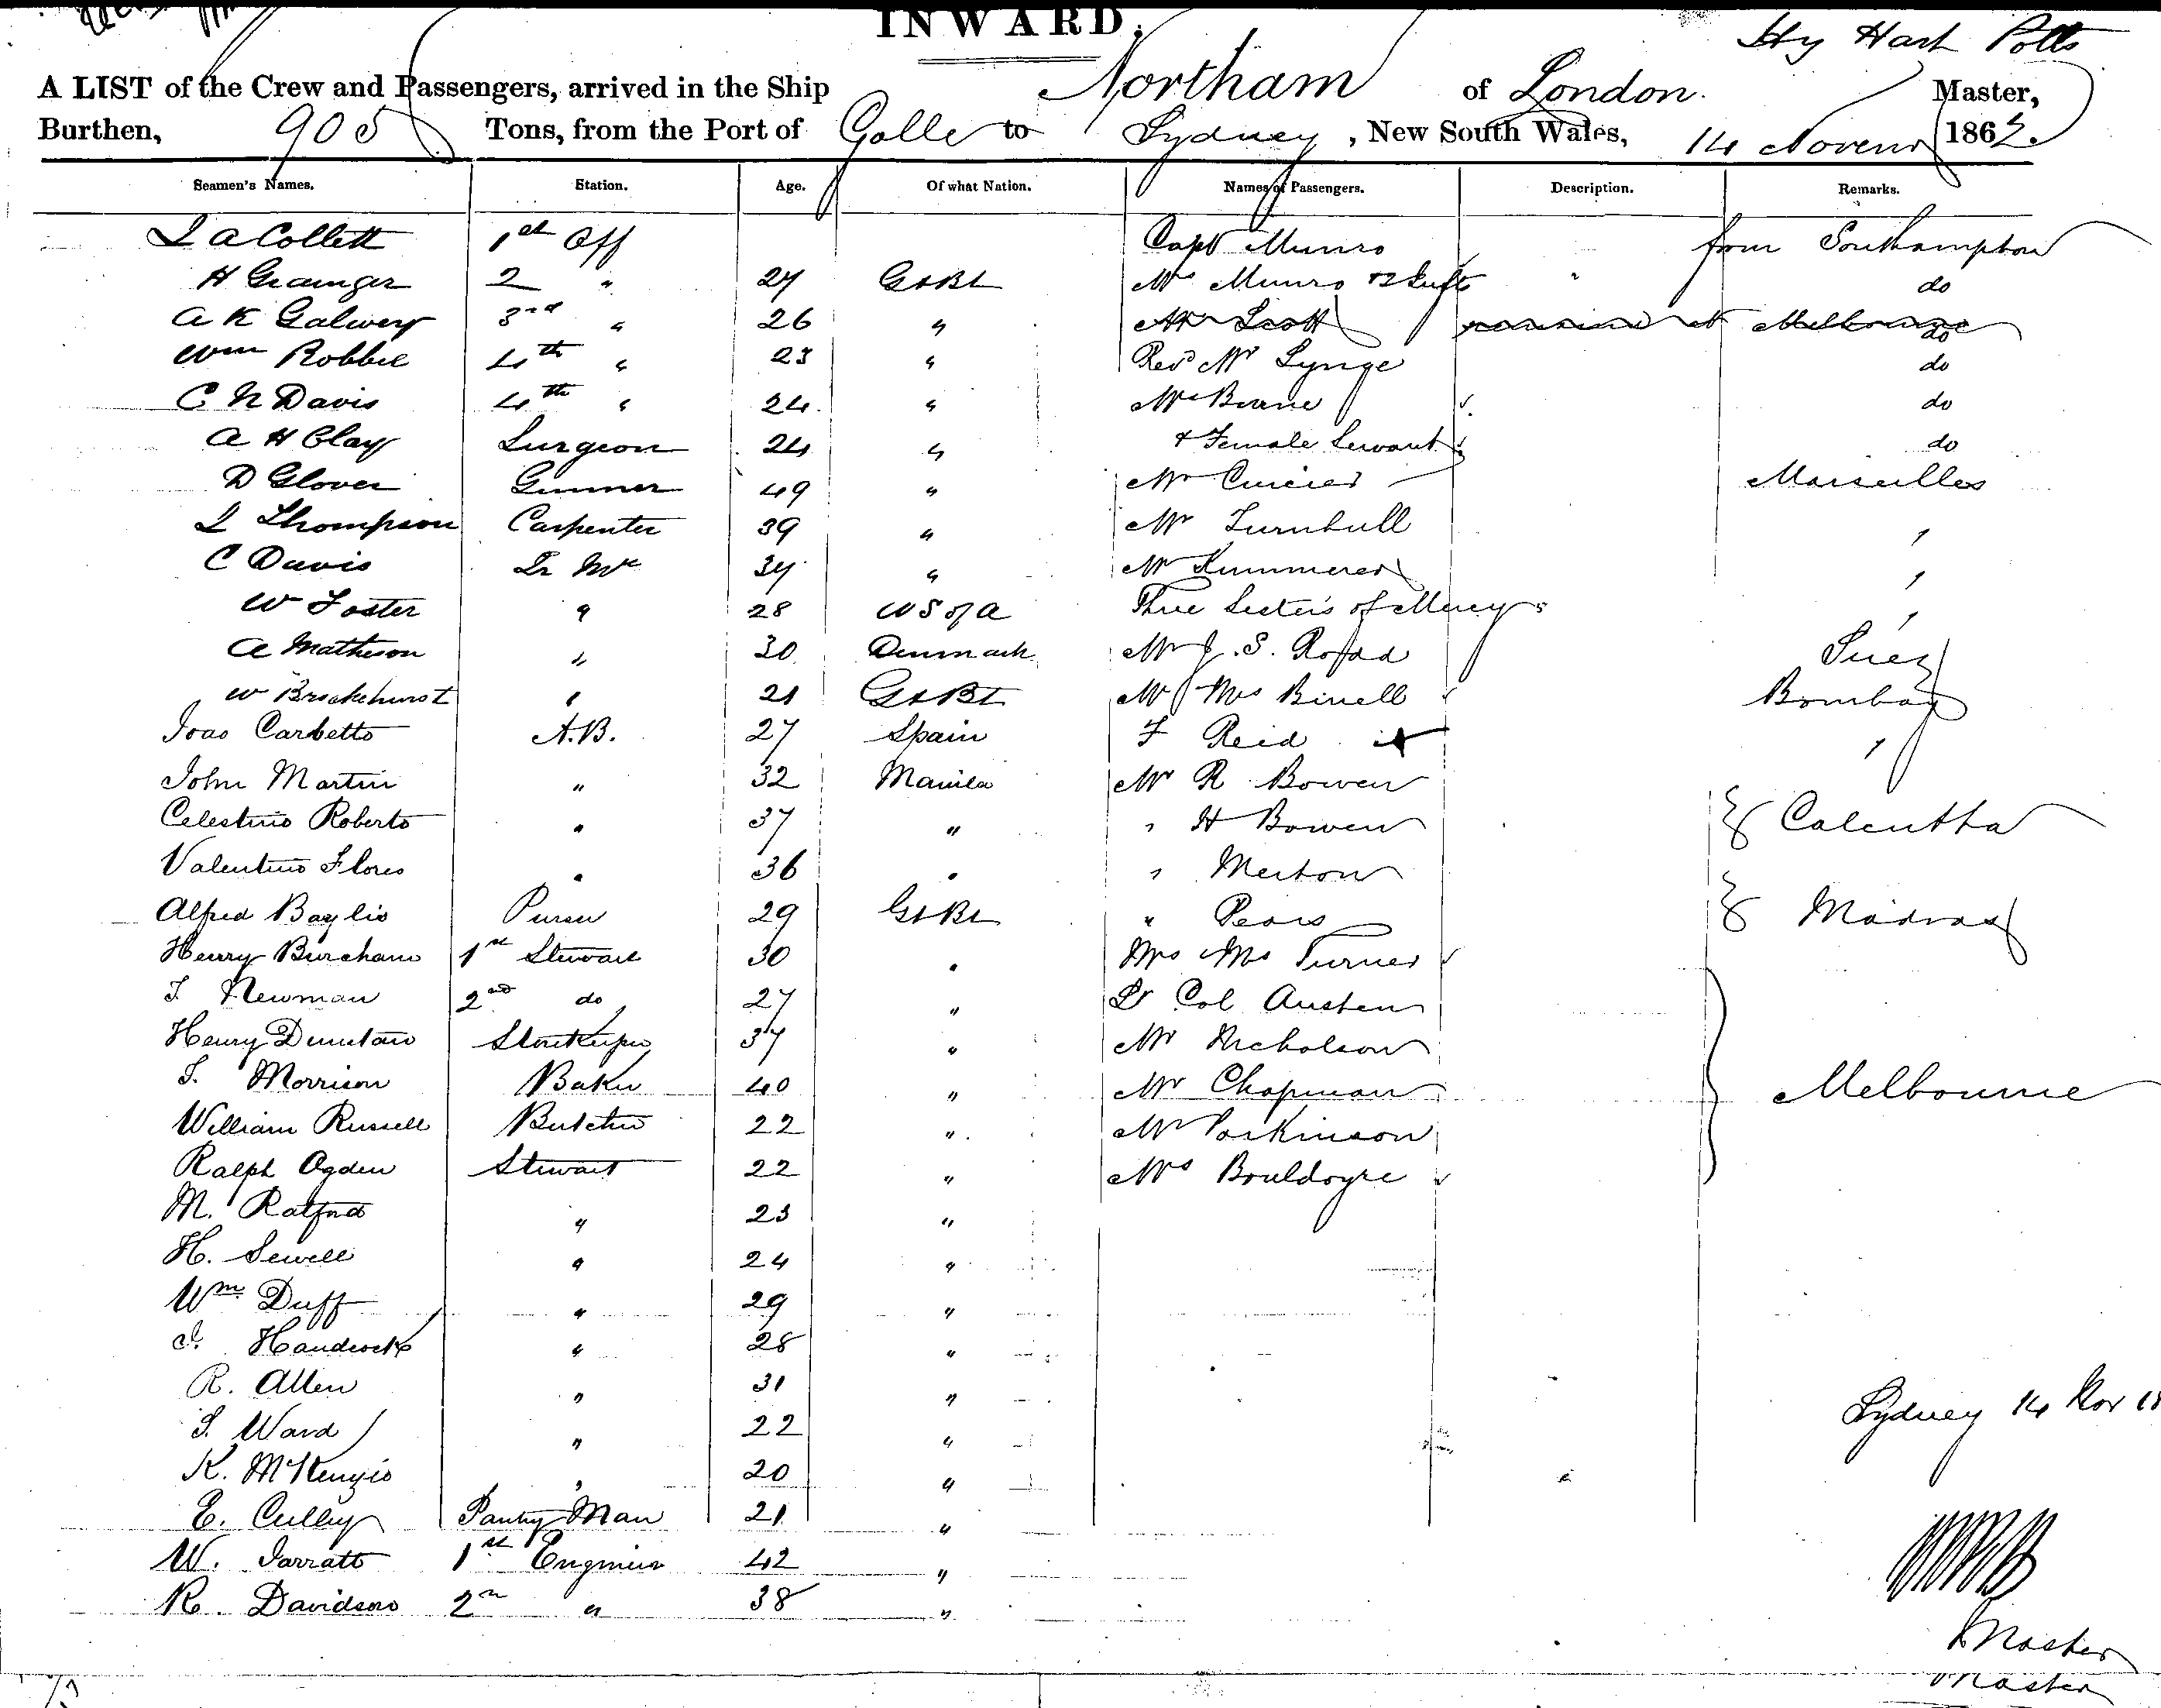 INWARD.
Hy Hart Potts
A LIST of the Crew and Passengers, arrived in the Ship Northam of London. Master,
Burthen, 905 Tons, from the Port of Galle to Sydney, New South Wales, 14 Novemr 1862.
Seamen's Names. Station. Age. Of what Nation. Names of Passengers. Description. Remarks.
Collett 1st Off Capt Munro from Southampton
H Grainger 2 " 27 Gt Bt Mrs Munro do
A K Galwey 3rd " 26 " Mr Scott Melbourne do
Wm Robbie 4th " 23 " Revd Mr Synge do
C N Davis 4th " 24 " do
A H Clay Surgeon 24 " & Female Servant do
D Glover Gunner 49 " Mr Marseilles
Thompson Carpenter 39 " Mr Turnbull "
C Davis Qr Mr 34 " Mr Kummerer "
W Foster " 28 US of A Three Sisters of Mercy "
A Matheson " 30 Denmark Mr J. S. Suez
W Brockehurst " 21 Gt Bt Mr Mrs Birrell Bombay
Joao Carbetto A.B. 27 Spain F Reid "
John Martin " 32 Manila Mr R Bowen
Celestino Roberto " 37 " " H Bowen Calcutta
Valentino Flores " 36 " " Merton
Alfred Baylis Purser 29 Gt Bt " Pears Madras
Henry Burcham 1st Steward 30 " Mrs Turner
Newman 2nd do 27 " Lt Col Austen
Henry Dunstan Storekeeper 37 " Mr Nicholson
Morrison Baker 40 " Mr Chapman Melbourne
William Russell Butcher 22 " Mr Parkinson
Ralph Ogden Steward 22 " Mrs
M. " 23 "
H. Sewell " 24 "
Wm Duff " 29 "
Handcock " 28 "
R. Allen " 31 "
Ward " 22 " Sydney 14 Nov
K. McKenzie " 20 "
E. Culley Pantry Man 21 "
W. Jarratt 1st Engineer 42 "
R. Davidson 2nd " 38 "
Master
Master